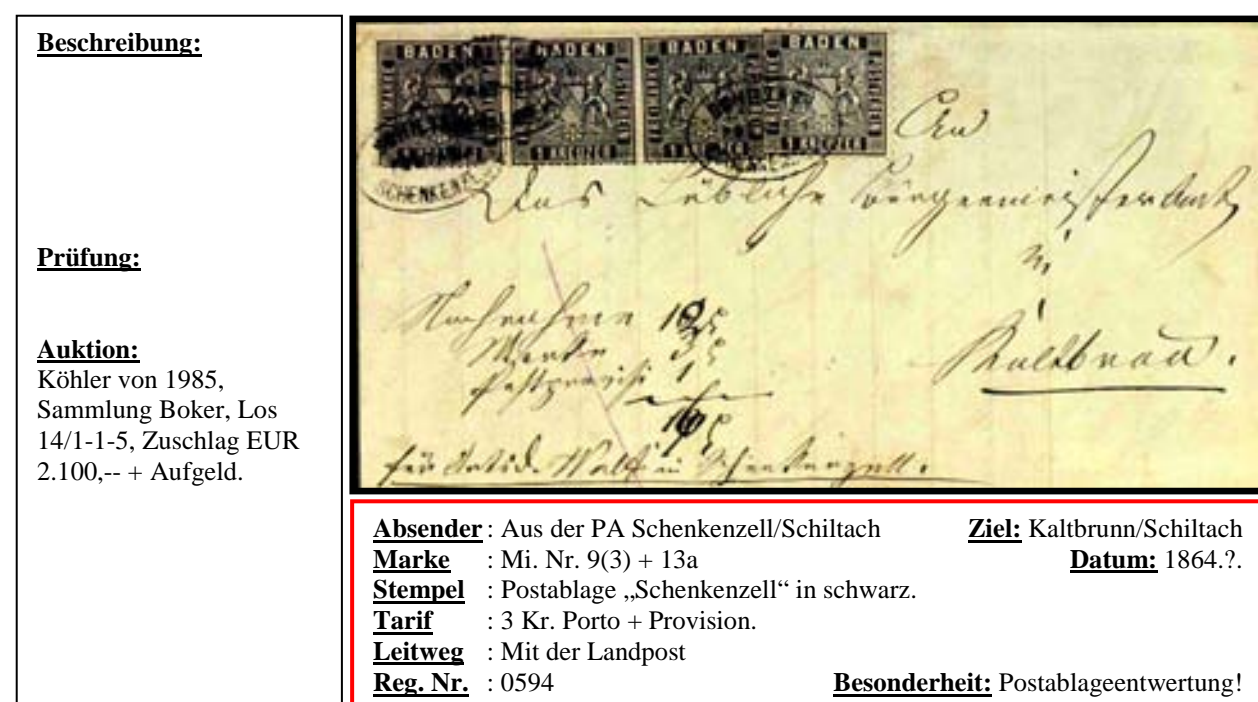 Beschreibung:
Prüfung:
Auktion:
Köhler von 1985,
Sammlung Boker, Los
14/1-1-5, Zuschlag EUR
2.100,-- + Aufgeld.
BADEN BADEN BADEN BADEN
1 KREUZER 1 KREUZER
SCHENKENZELL
An
Das Löbliche Bürgermeister Amt
in
Kaltbrun.
Nachnahme
Marke 3
1
für in Schenkenzell.
Absender : Aus der PA Schenkenzell/Schiltach Ziel: Kaltbrunn/Schiltach
Marke : Mi. Nr. 9(3) + 13a Datum: 1864.?.
Stempel : Postablage „Schenkenzell“ in schwarz.
Tarif : 3 Kr. Porto + Provision.
Leitweg : Mit der Landpost
Reg. Nr. : 0594 Besonderheit: Postablageentwertung!